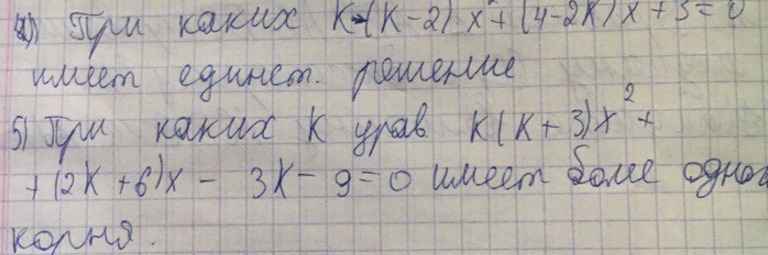 4) При каких К-(К-2)x²+(4-2К)x+3=0
имеет единст. решение
5) При каких К урав К(К+3)x²+
+(2К+6)x- 3К-9=0 имеет более одного
корня.